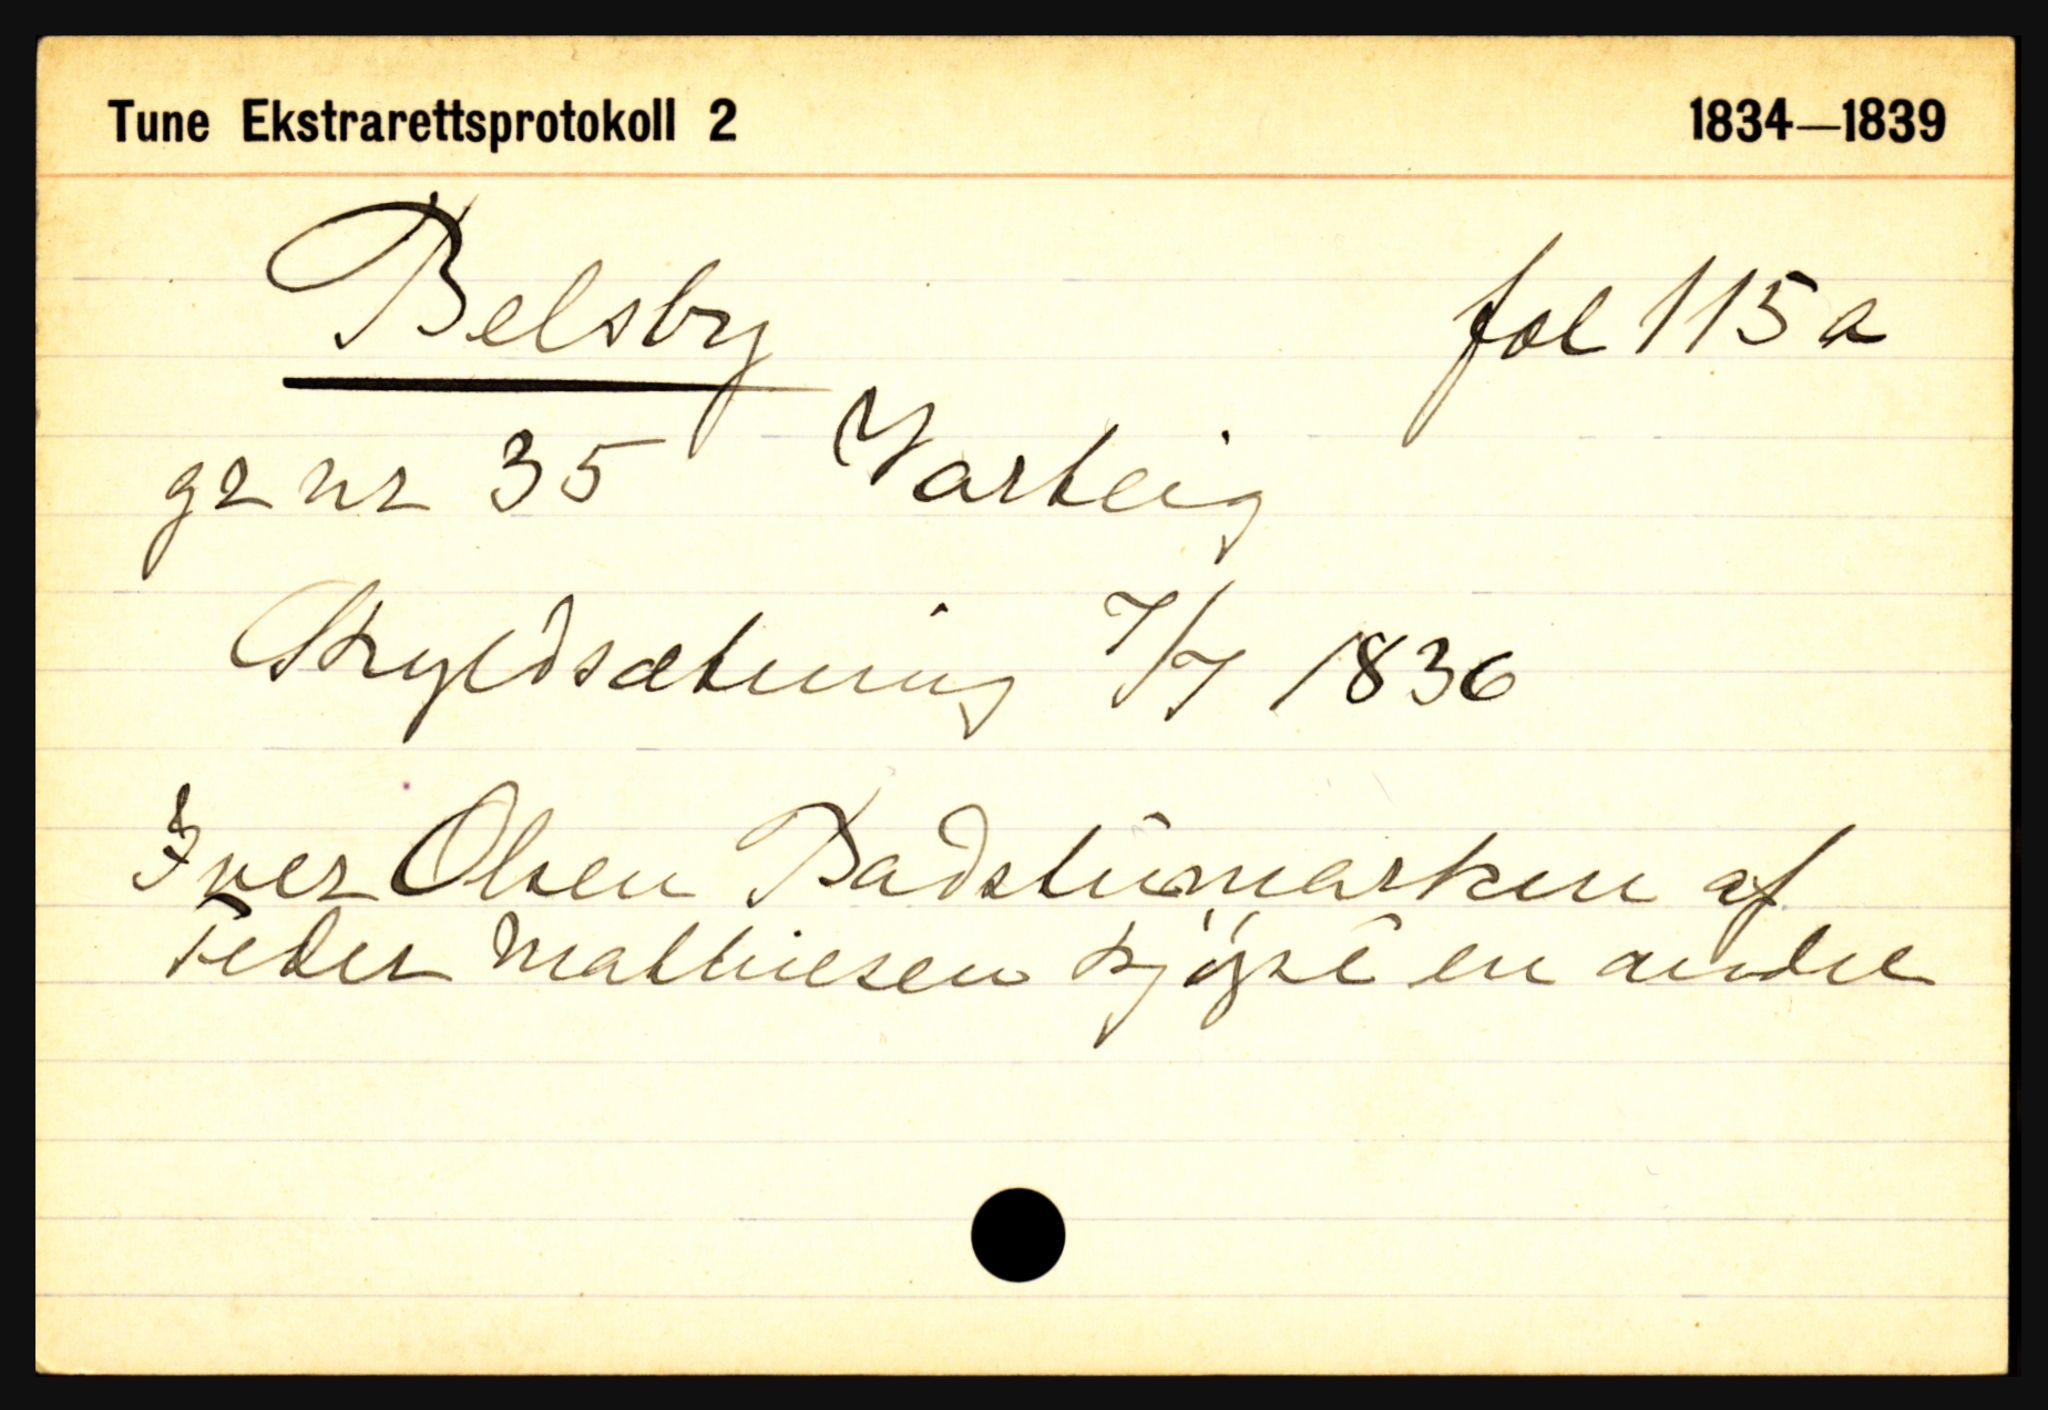 Tune Ekstrarettsprotokoll 2 1834—1839
Belsby fol 115a
gr nr 35 Varteig
Skyldsætning 7/7 1836
Iver Olsen Badstumarken af
Peder Mathiesen kjöpt en andel